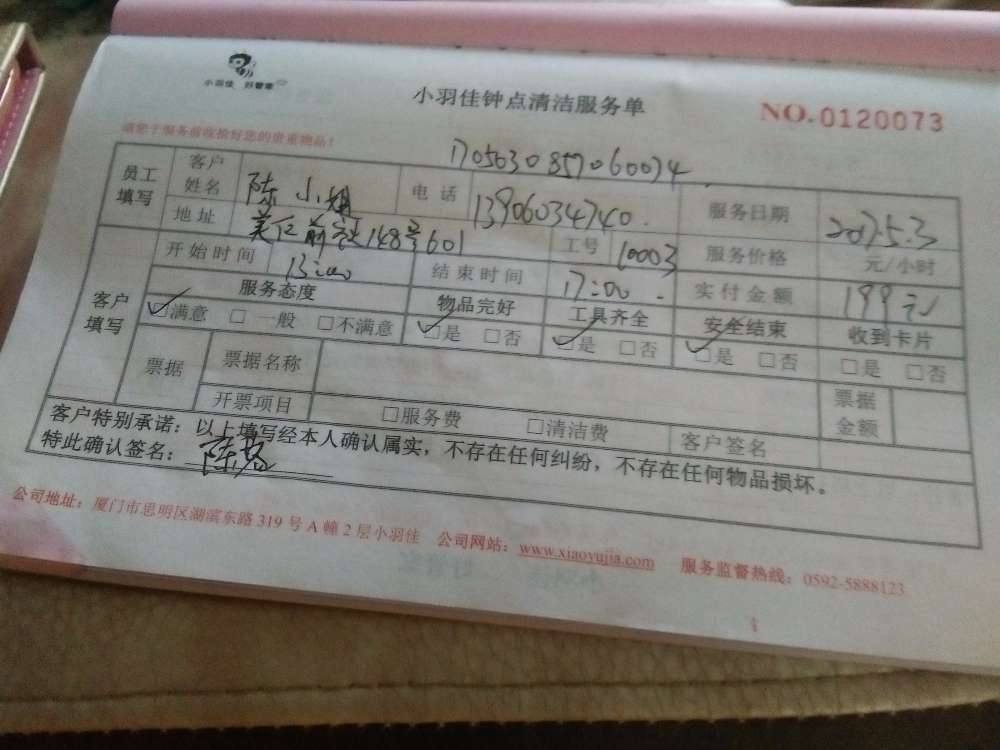 小羽佳 好管家
小羽佳钟点清洁服务单
NO.0120073
请您于服务前收拾好您的贵重物品!
1705030857060074
员工填写 客户姓名 陈小姐 电话 13906034740. 服务日期 2017.5.3
地址 前 148号601 工号 10003 服务价格 元/小时
客户填写 开始时间 13:00 结束时间 17:00. 实付金额 199元
服务态度 物品完好 工具齐全 安全结束 收到卡片
☑满意 □一般 □不满意 ☑是 □否 ☑是 □否 ☑是 □否 □是 □否
票据 票据名称 票据金额
开票项目 □服务费 □清洁费 客户签名
客户特别承诺:以上填写经本人确认属实,不存在任何纠纷,不存在任何物品损坏。
特此确认签名: 陈
公司地址:厦门市思明区湖滨东路319号A幢2层小羽佳 公司网站:www.xiaoyujia.com 服务监督热线:0592-5888123